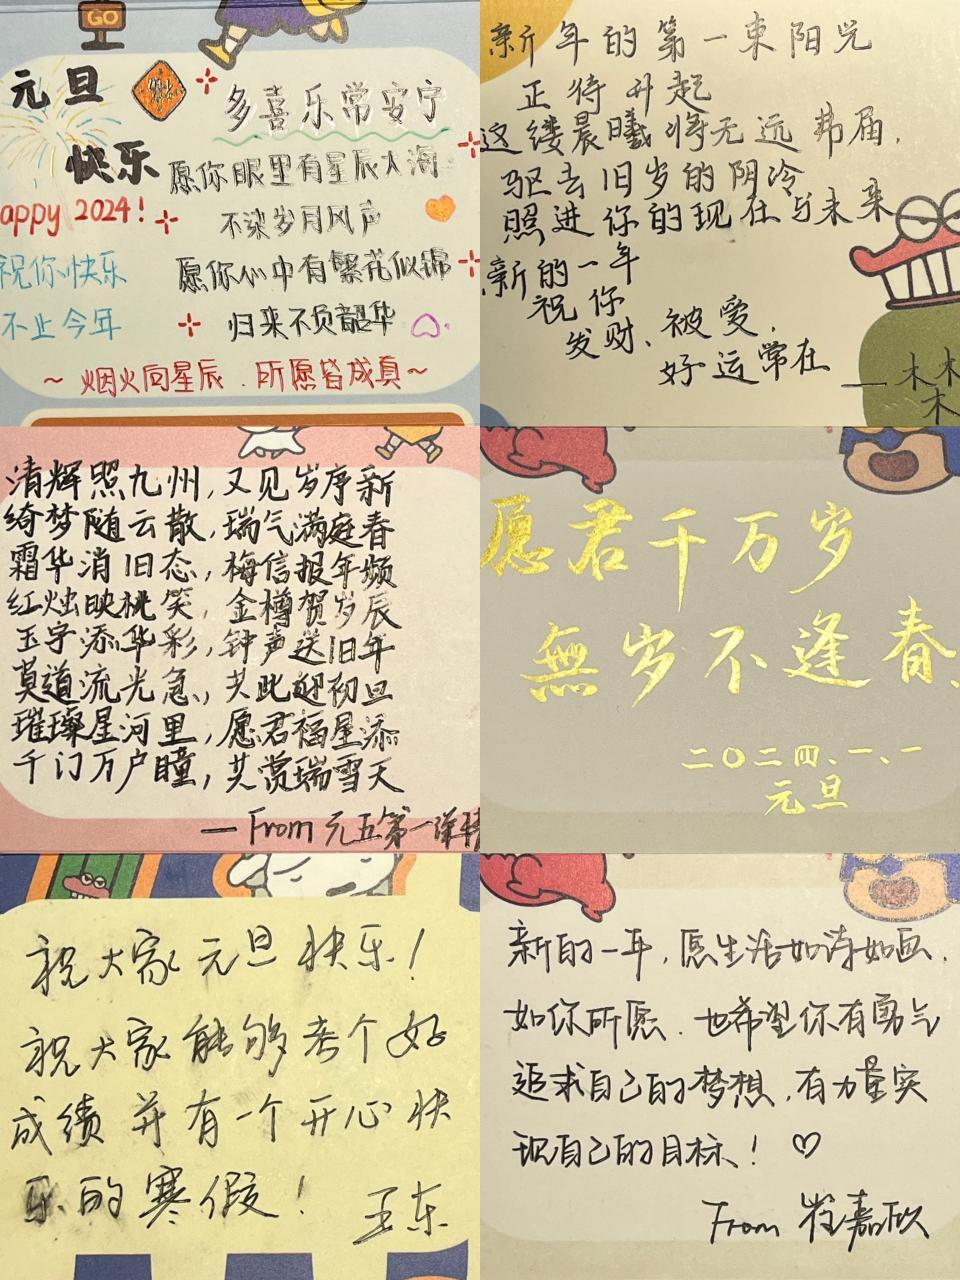 GO
元旦
快乐
appy 2024!
祝你快乐
不止今年
多喜乐常安宁
愿你眼里有星辰大海
不染岁月风声
愿你心中有繁花似锦
归来不负韶华
~ 烟火向星辰.所愿皆成真~
新年的第一束阳光
正待升起
这缕晨曦将无远弗届,
驱去旧岁的阴冷
照进你的现在与未来
新的一年
祝你
发财、被爱,
好运常在
——木木
木
清辉照九州,又见岁序新
绮梦随云散,瑞气满庭春
霜华消旧态,梅信报年频
红烛映桃笑,金樽贺岁辰
玉宇添华彩,钟声送旧年
莫道流光急,共此迎初旦
璀璨星河里,愿君福星添
千门万户瞳,共赏瑞雪天
—From 元五第一
愿君千万岁
無岁不逢春.
二〇二四、一、一
元旦
祝大家元旦快乐!
祝大家能够考个好
成绩 并有一个开心快
乐的寒假!
王东
新的一年,愿生活如诗如画,
如你所愿.也希望你有勇气
追求自己的梦想,有力量实
现自己的目标!♡
From 崔嘉欣